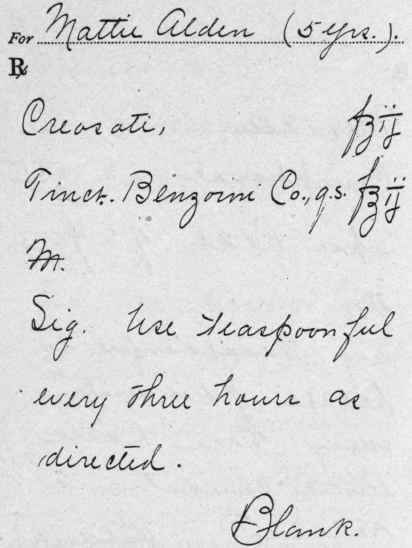 For Mattie Alden (5 yrs.).
℞
Creosoti, fʒij
Tinct. Benzoini Co., q.s. f℥ij
M.
Sig. Use teaspoonful
every three hours as
directed.
Blank.